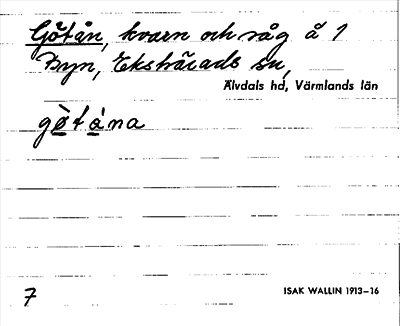 Götån, kvarn och såg å 1
Byn, Ekshärads sn,
Älvdals hd, Värmlands län
gö̀tåna
7
ISAK WALLIN 1913–16